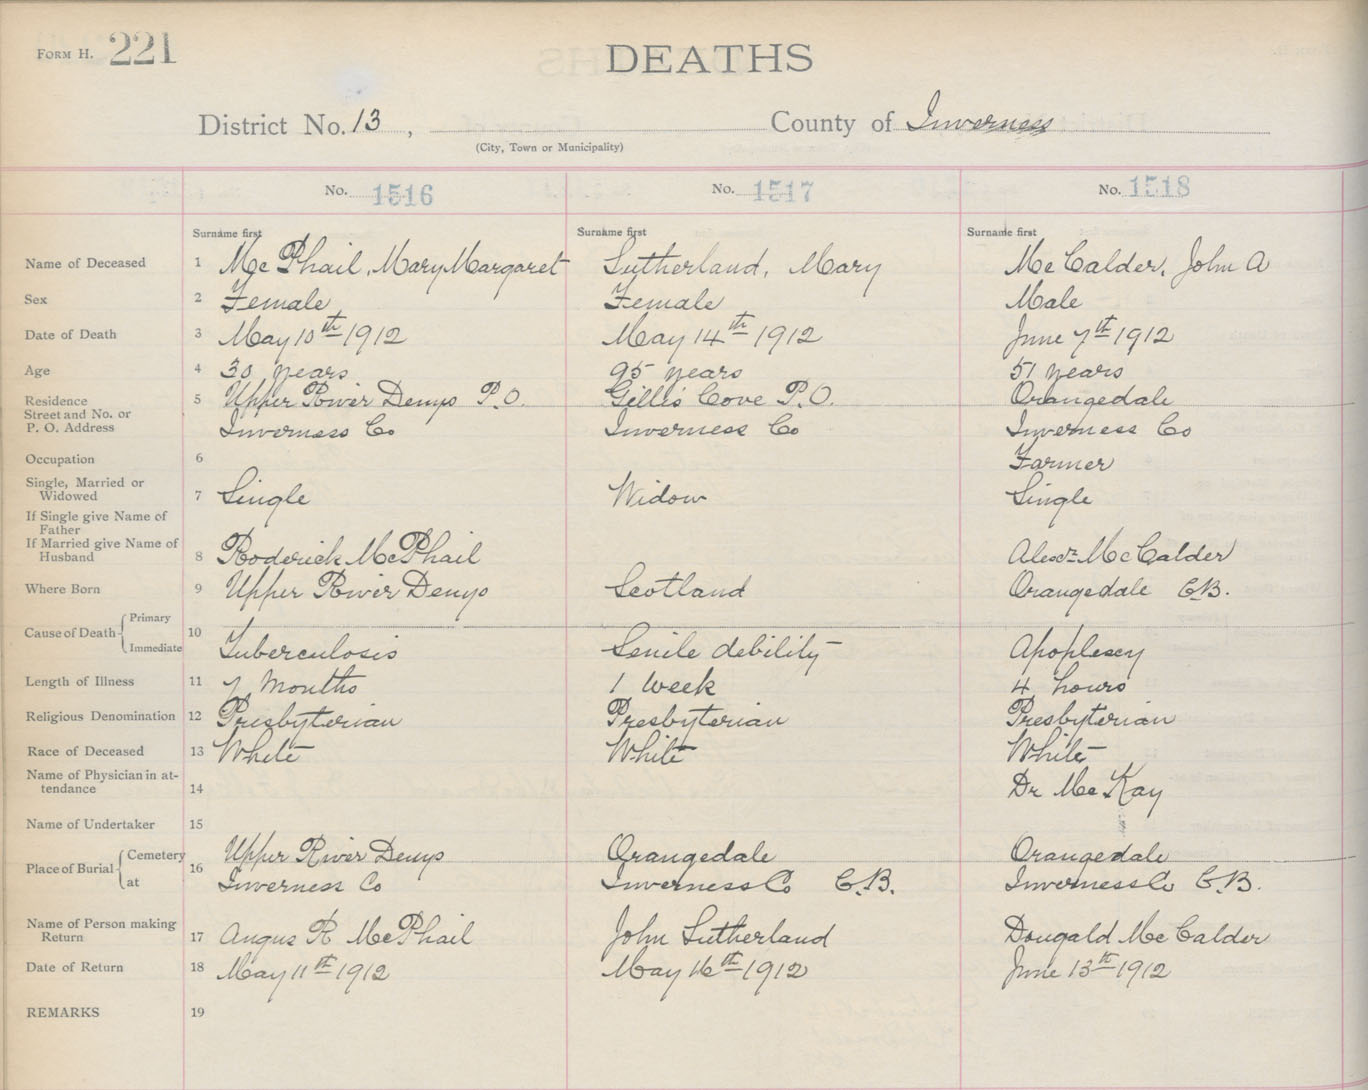 FORM H. 221
DEATHS
District No. 13 , County of Inverness
(City, Town or Municipality)
No. 1516 No. 1517 No. 1518
Surname first Surname first Surname first
Name of Deceased 1 McPhail, Mary Margaret Sutherland, Mary McCalder, John A
Sex 2 Female Female Male
Date of Death 3 May 10th 1912 May 14th 1912 June 7th 1912
Age 4 30 years 95 years 51 years
Residence 5 Upper River Denys P.O. Gillis Cove P.O. Orangedale
Street and No. or
P. O. Address Inverness Co Inverness Co Inverness Co
Occupation 6 Farmer
Single, Married or
Widowed 7 Single Widow Single
If Single give Name of
Father
If Married give Name of
Husband 8 Roderick McPhail Alexdr McCalder
Where Born 9 Upper River Denys Scotland Orangedale C.B.
Primary
Cause of Death 10
Immediate Tuberculosis Senile debility Apoplexy
Length of Illness 11 7 Months 1 week 4 hours
Religious Denomination 12 Presbyterian Presbyterian Presbyterian
Race of Deceased 13 White White White
Name of Physician in at-
tendance 14 Dr McKay
Name of Undertaker 15
Cemetery Upper River Denys Orangedale Orangedale
Place of Burial 16
at Inverness Co Inverness Co C.B. Inverness Co C.B.
Name of Person making
Return 17 Angus R McPhail John Sutherland Dougald McCalder
Date of Return 18 May 11th 1912 May 16th 1912 June 13th 1912
REMARKS 19